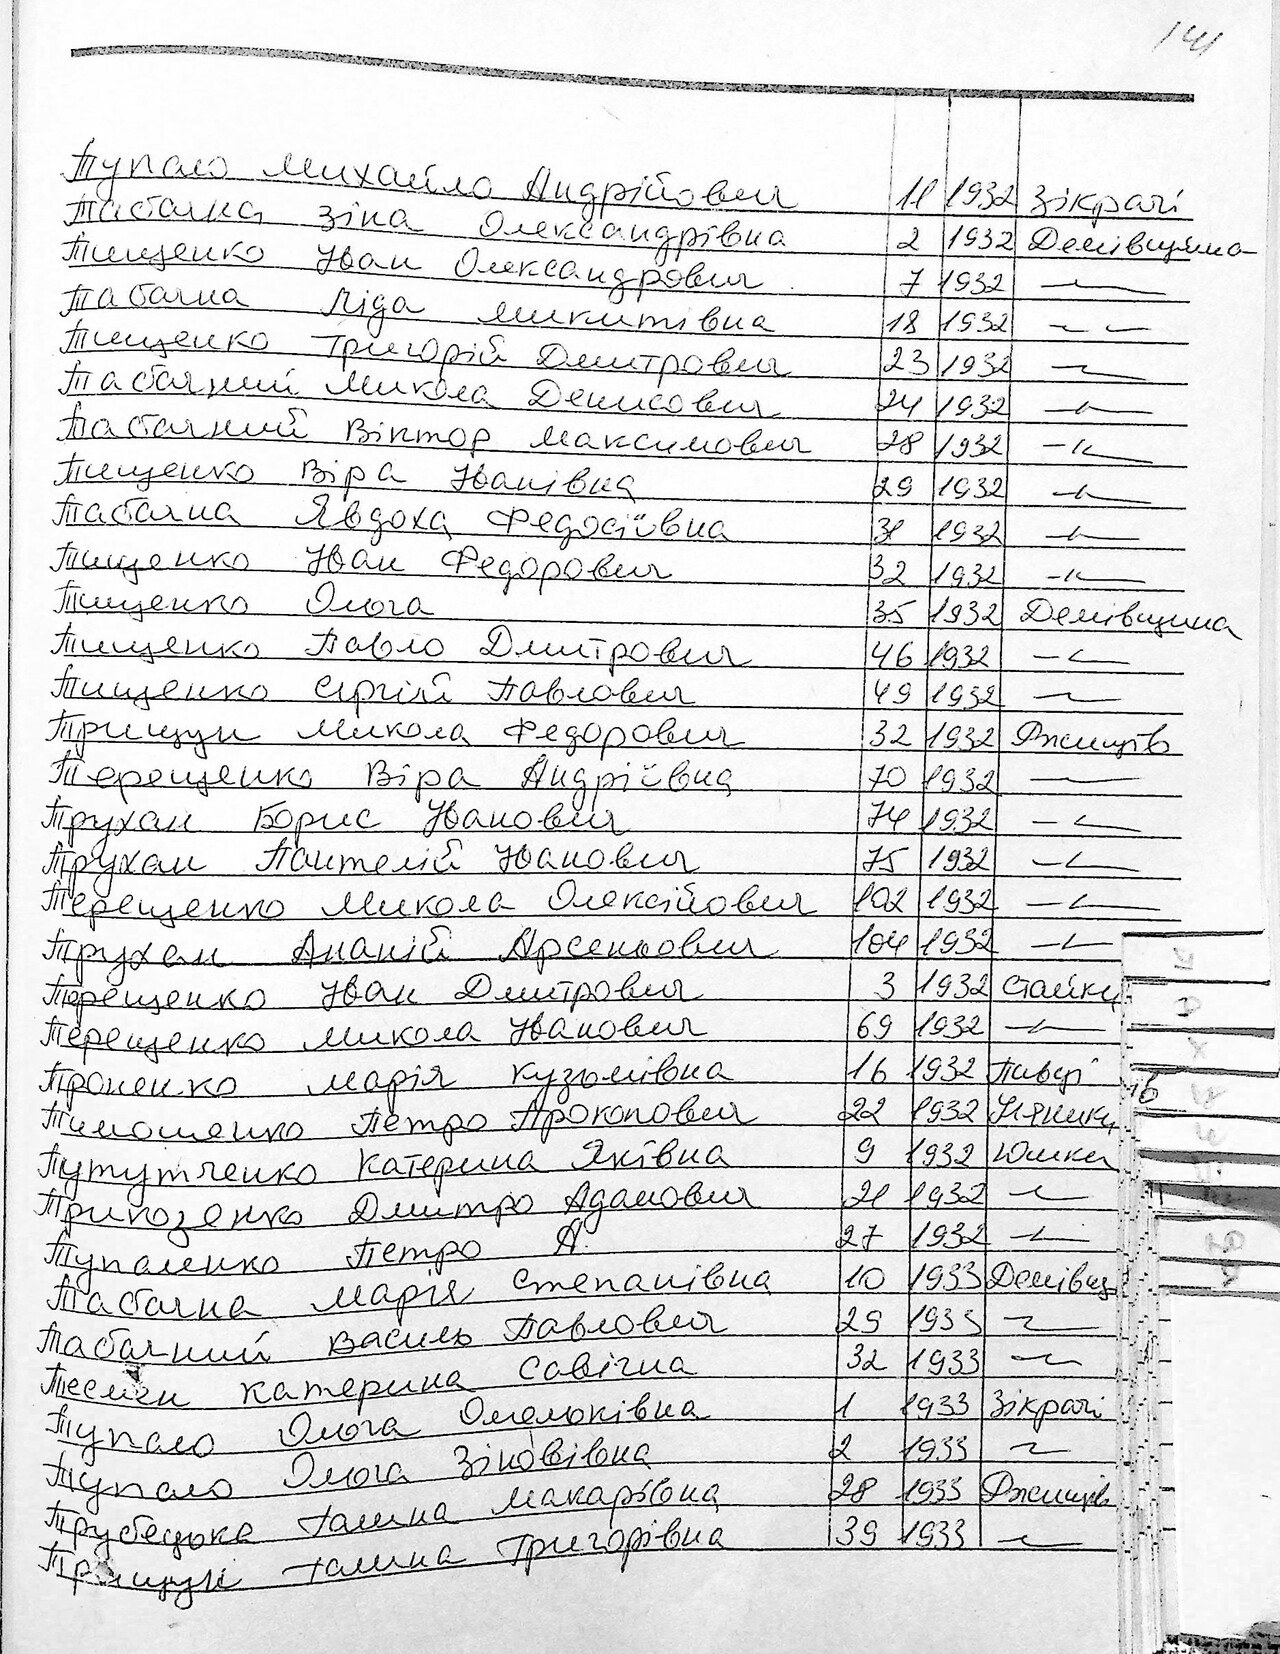 141
Тупало Михайло Андрійович 11 1932 Зікрачі
Табачна Зіна Олександрівна 2 1932 Демівщина
Тищенко Іван Олександрович 7 1932 —"—
Табачна Ліда Микитівна 18 1932 —"—
Тищенко Григорій Дмитрович 23 1932 —"—
Табачний Микола Денисович 24 1932 —"—
Табачний Віктор Максимович 28 1932 —"—
Тищенко Віра Іванівна 29 1932 —"—
Табачна Явдоха Федосіївна 31 1932 —"—
Тищенко Іван Федорович 32 1932 —"—
Тищенко Ольга 35 1932 Демівщина
Тищенко Павло Дмитрович 46 1932 —"—
Тищенко Сергій Павлович 49 1932 —"—
Трищун Микола Федорович 32 1932 Ржищів
Терещенко Віра Андріївна 70 1932 —"—
Трухан Борис Іванович 74 1932 —"—
Трухан Пантелій Іванович 75 1932 —"—
Терещенко Микола Олексійович 102 1932 —"—
Трухан Ананій Арсенович 104 1932 —"—
Терещенко Іван Дмитрович 3 1932 Стайки
Терещенко Микола Іванович 69 1932 —"—
Троненко Марія Кузьмівна 16 1932
Тимошенко Петро Прокопович 22 1932
Тутутченко Катерина Яківна 9 1932 Юшки
Дмитро Адамович 21 1932 —"—
Тупаленко Петро А. 27 1932 —"—
Табачна Марія Степанівна 10 1933 Демівщ
Табачний Василь Павлович 29 1933 —"—
Катерина Савічна 32 1933 —"—
Тупало Ольга Омельківна 1 1933 Зікрачі
Тупало Ольга Зіновівна 2 1933 —"—
Трубецька Галина Макарівна 28 1933 Ржищів
Трищун Галина Григорівна 39 1933 —"—